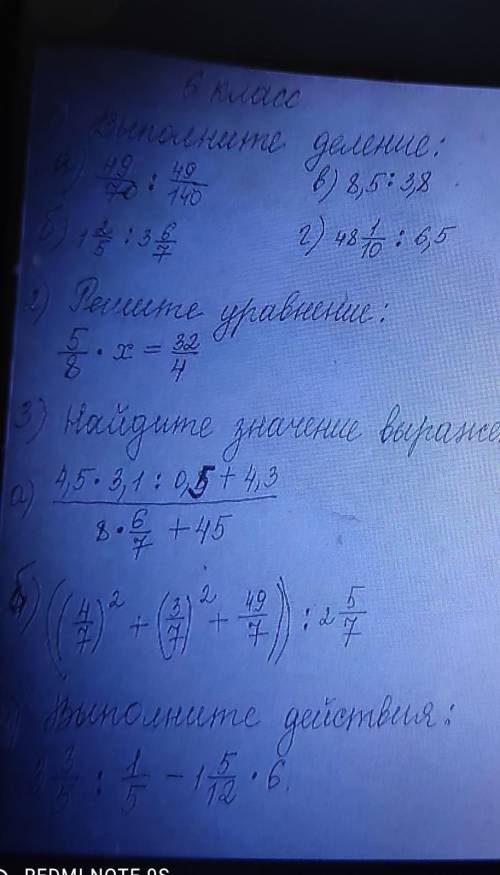 6 класс
Выполните деление:
а) 49/70 : 49/140 в) 8,5 : 3,8
б) 1 2/5 : 3 6/7 г) 48 1/10 : 6,5
2) Решите уравнение:
5/8 · x = 32/4
3) Найдите значение выраже
а) (4,5 · 3,1 : 0,5 + 4,3)/(8 · 6/7 + 45)
б) ((4/7)² + (3/7)² + 49/7)) : 2 5/7
Выполните действия:
3 3/5 : 1/5 − 1 5/12 · 6.
REDMI NOTE 9S